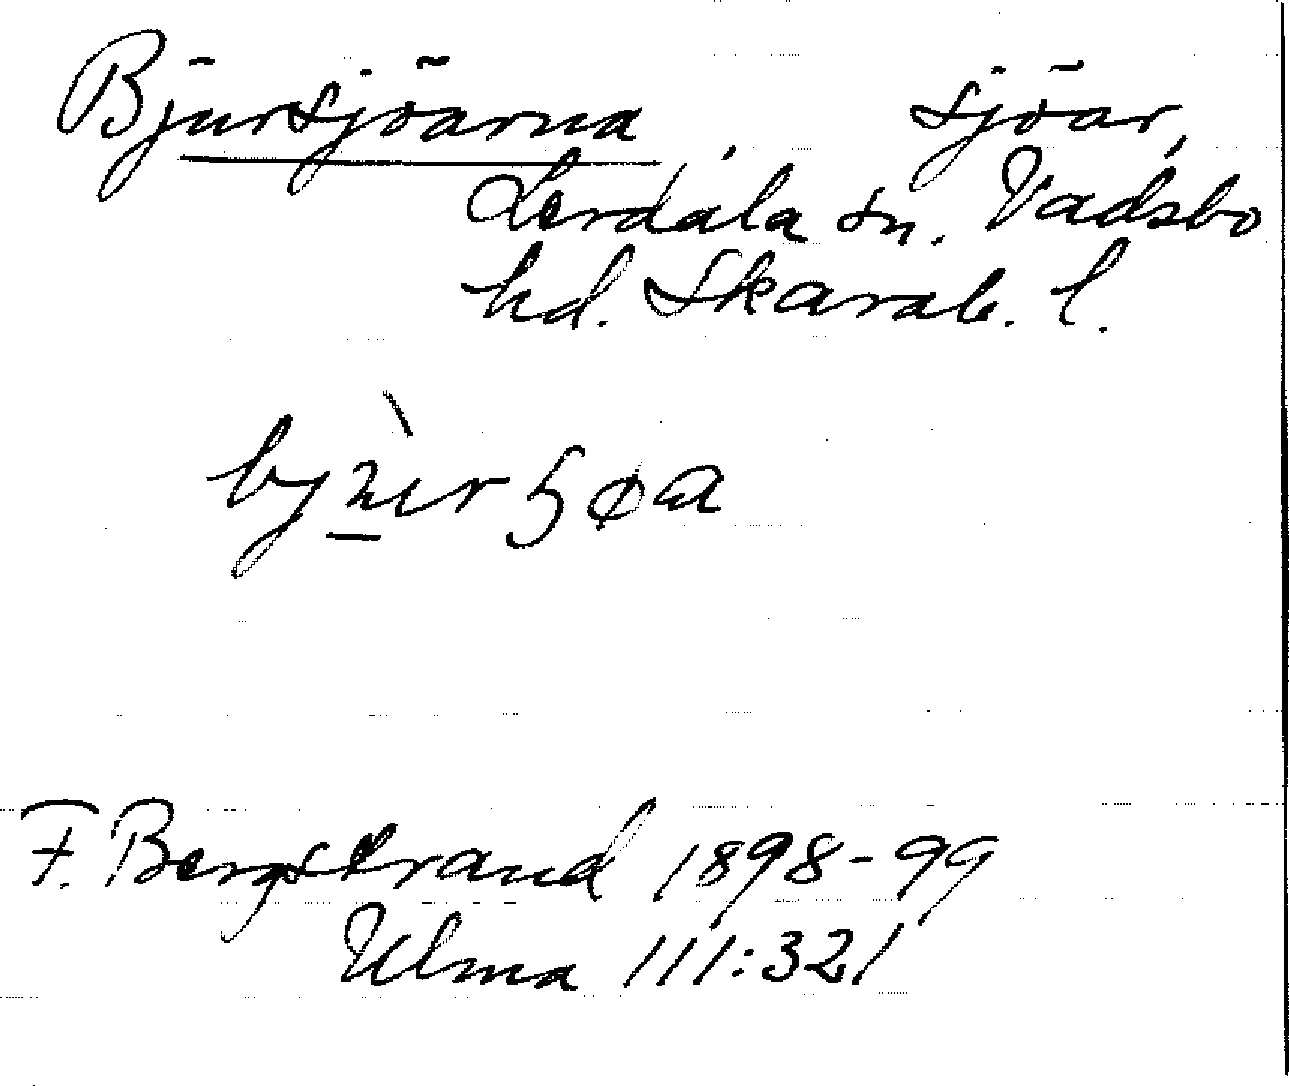 Bjursjöarna sjöar,
Lerdala sn. Vadsbo
hd. Skarab. l.
F. Bergstrand 1898-99
Ulma 111:321